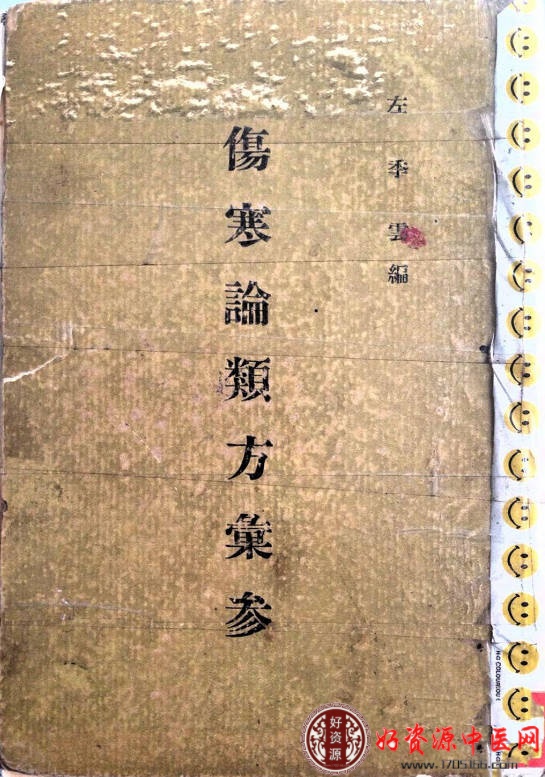 左季雲編
傷寒論類方彙参
好资源
好资源中医网